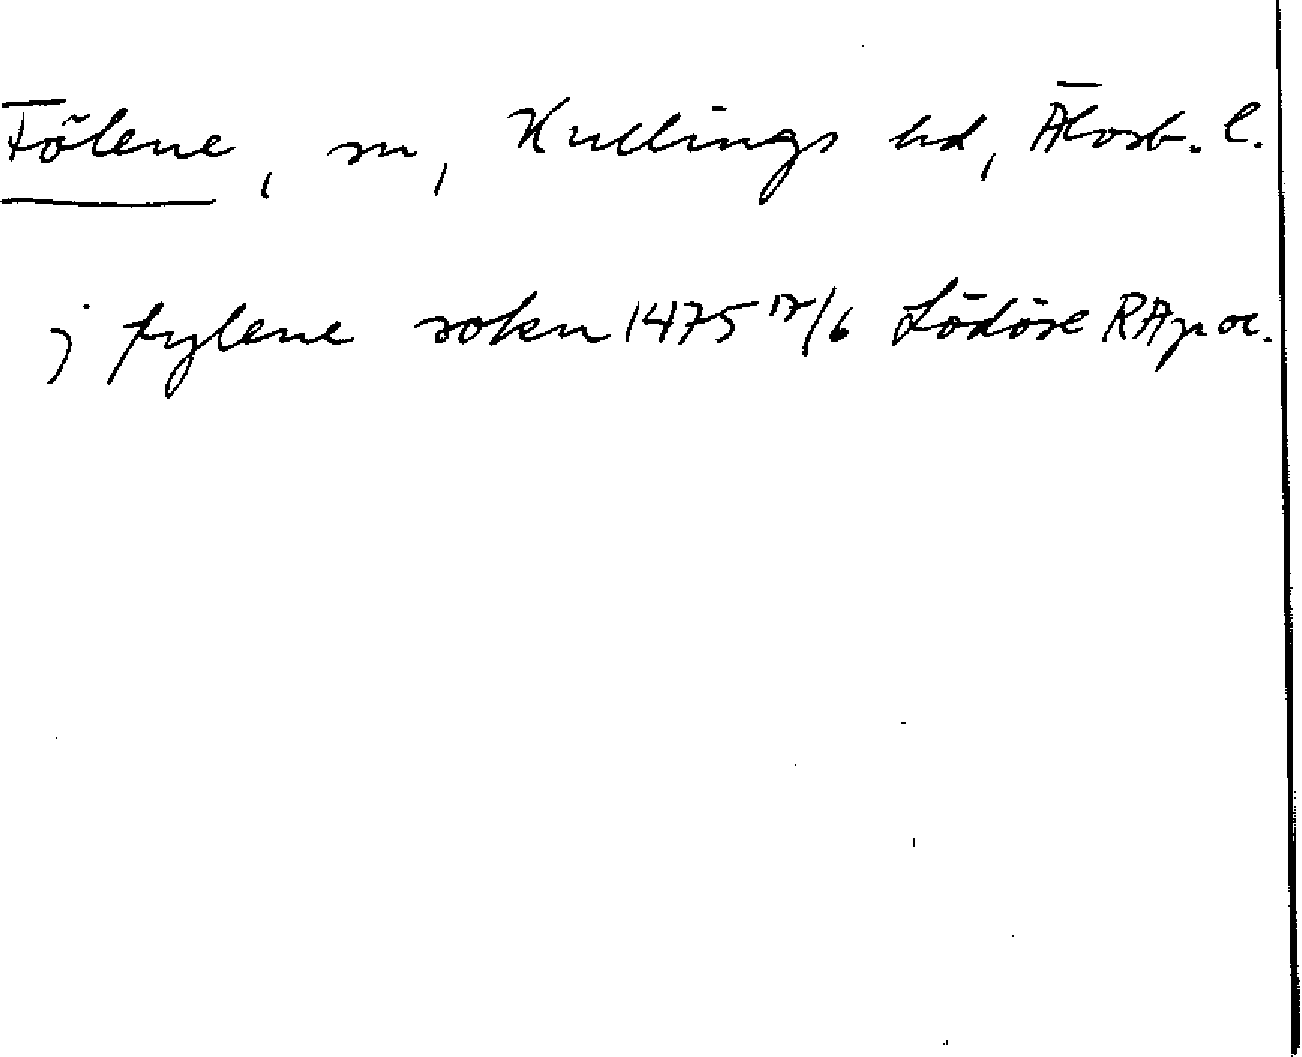 Fölene, sn, Kullings hd, Älvsb. l.
j fylene sokn 1475 17/6 Lödöse RAp or.